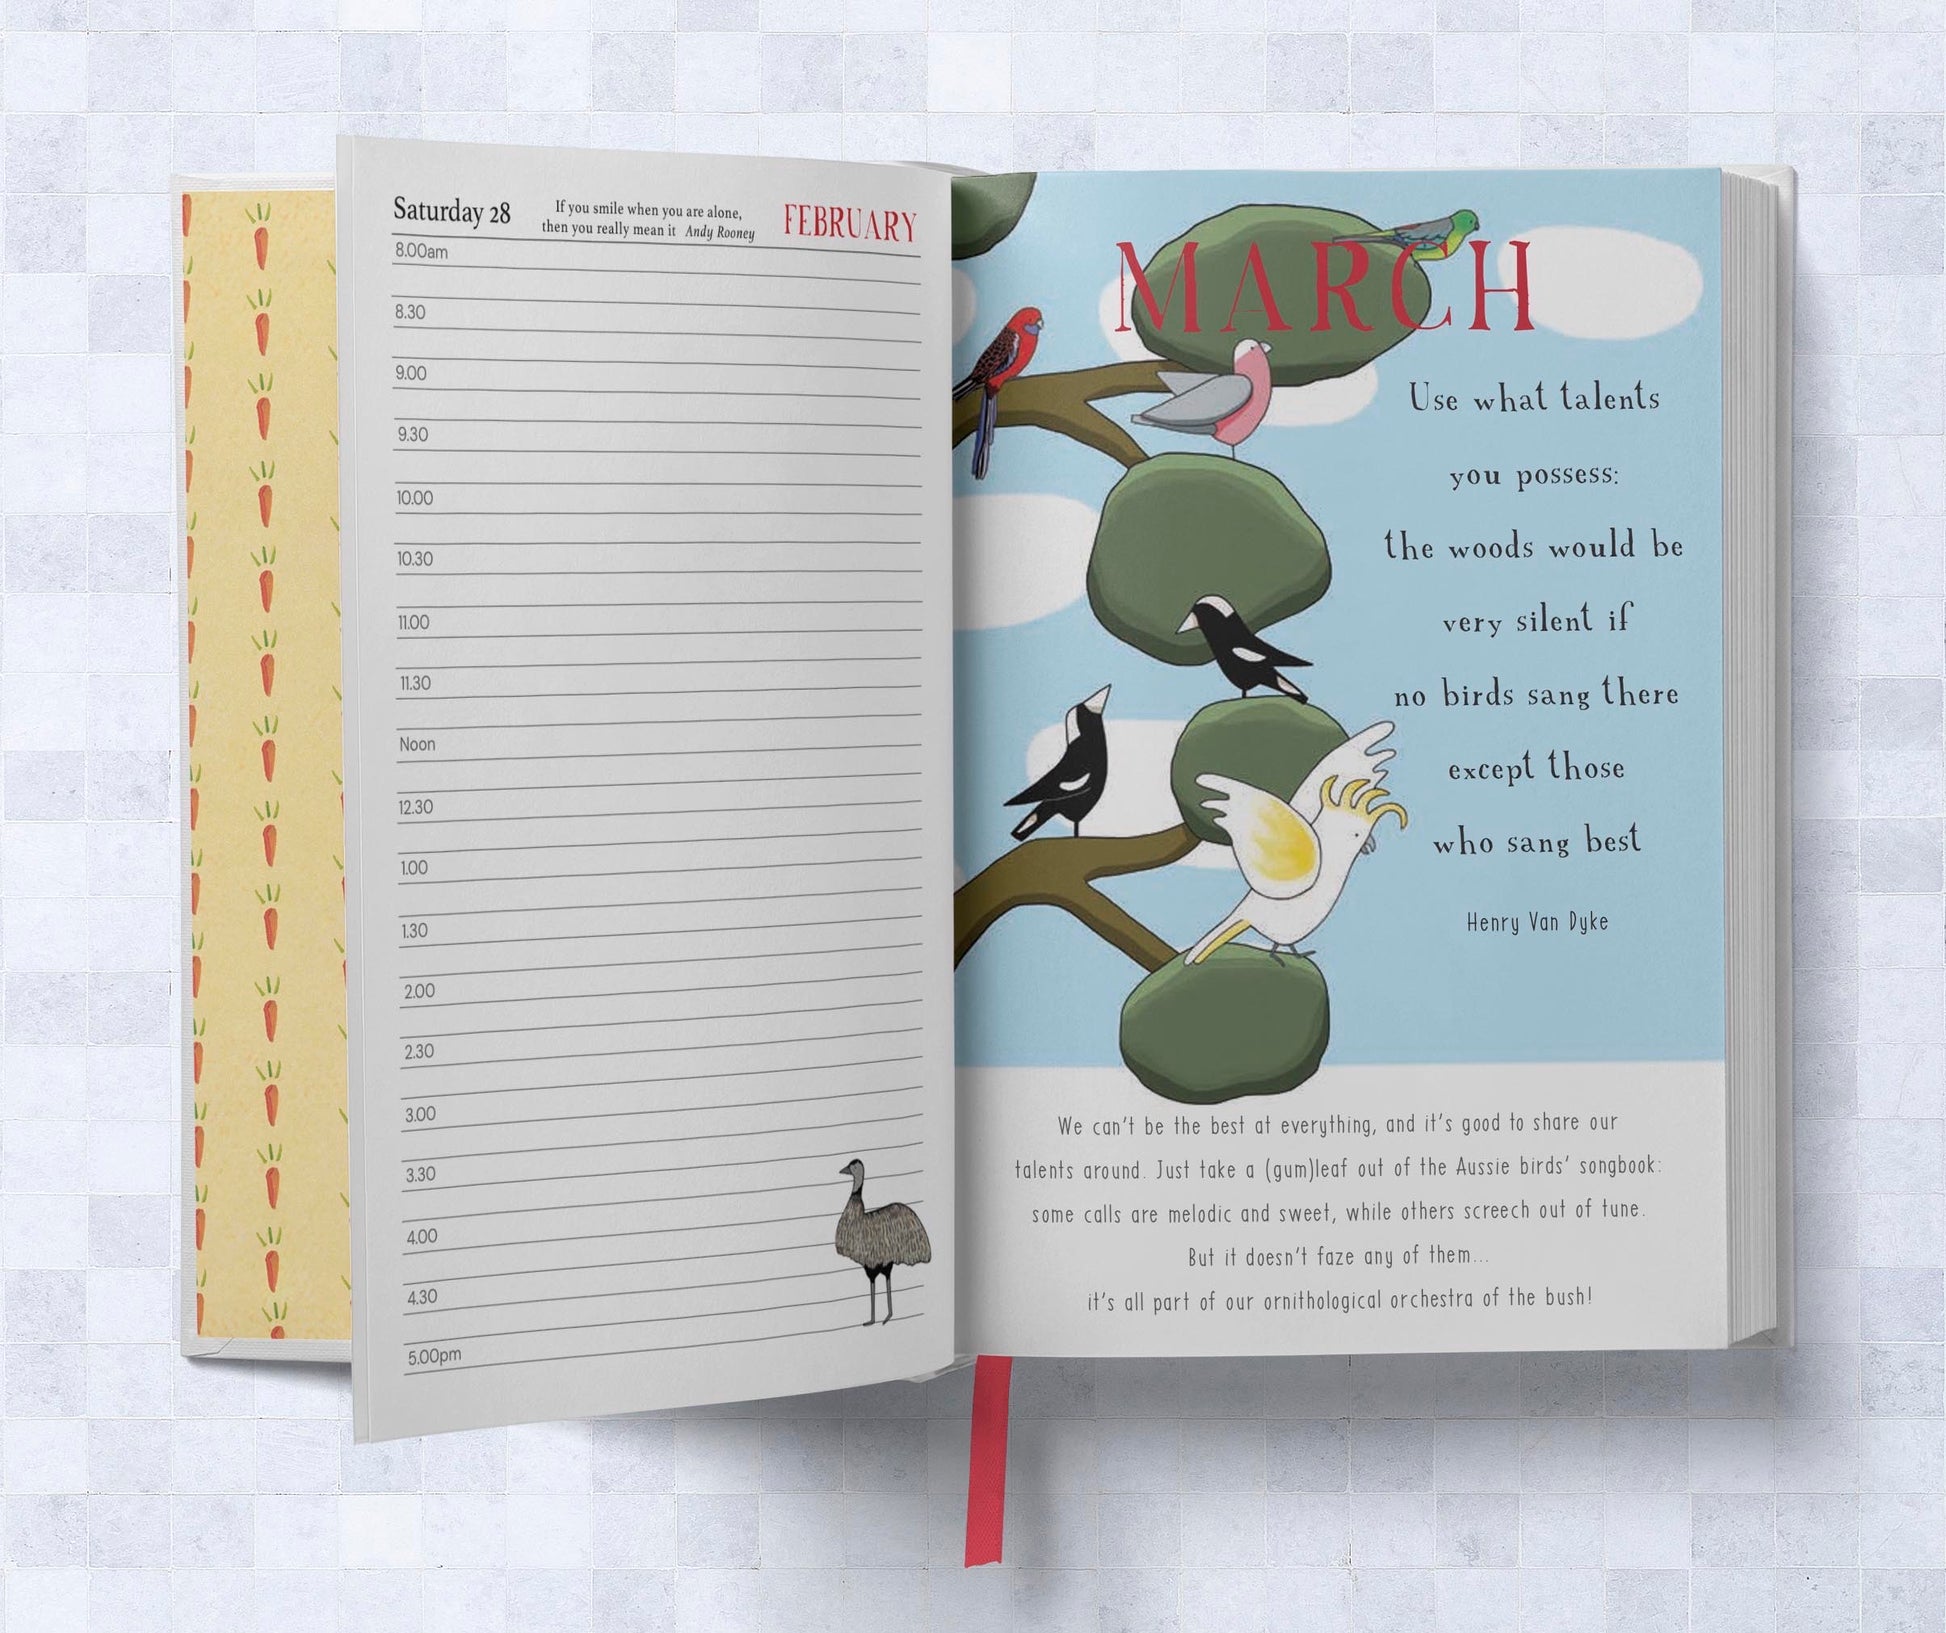 Saturday 28
If you smile when you are alone,
then you really mean it Andy Rooney
FEBRUARY
8.00am
8.30
9.00
9.30
10.00
10.30
11.00
11.30
Noon
12.30
1.00
1.30
2.00
2.30
3.00
3.30
4.00
4.30
5.00pm
MARCH
Use what talents
you possess:
the woods would be
very silent if
no birds sang there
except those
who sang best
Henry Van Dyke
We can't be the best at everything, and it's good to share our
talents around. Just take a (gum)leaf out of the Aussie birds' songbook:
some calls are melodic and sweet, while others screech out of tune.
But it doesn't faze any of them...
it's all part of our ornithological orchestra of the bush!